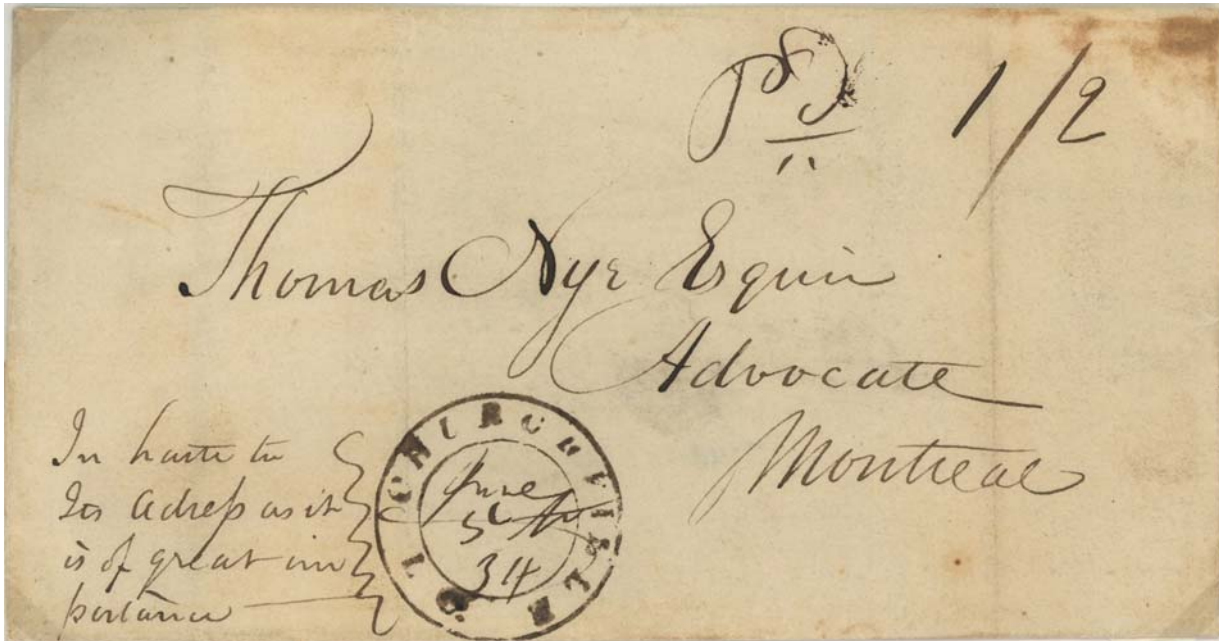 Pd 1/2
Thomas Nye Esquir
Advocate
Montreal
In haste to
Its adress as it
is of great im
portance
CHURCHVILLE
June
5th
34